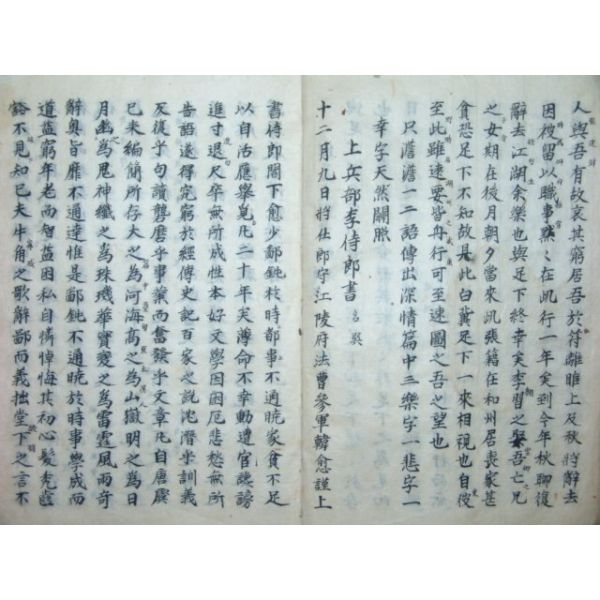 人與吾有故哀其窮居吾於符離睢上及秋將辭去
因被留以職事默々在此行一年矣到今年秋聊復
辭去江湖余樂也與足下終幸矣李習之娶吾亡兄
之女期在後月朝夕當來此張籍在和州居喪家甚
貧恐足下不知故具此白冀足下一來相視也自彼
至此雖遠要皆舟行可至速圖之吾之望也
只澹澹一二語傳出深情篇中三樂字一悲字一
幸字天然關照
上兵部李侍郎書
十二月九日將仕郎守江陵府法曹參軍韓愈謹上
書侍郎閣下愈少鄙鈍於時都事不通曉家貧不足
以自活應舉覓凡二十年矣薄命不幸動遭官讒謗
進寸退尺卒無所成性本好文學因困厄悲愁無所
告語遂得究窮於經傳史記百家之說沈潛乎訓義
反復乎句讀礱磨乎事業而奮發乎文章凡自唐虞
已来編簡所存大之為河海高之為山嶽明之為日
月幽為鬼神纖之為珠璣華實變之為雷霆風雨奇
辭奧旨靡不通達惟是鄙鈍不通曉於時事學成而
道益窮年老而智益困私自憐悼悔其初心髮禿齒
豁不見知己夫牛角之歌辭鄙而義拙堂下之言不